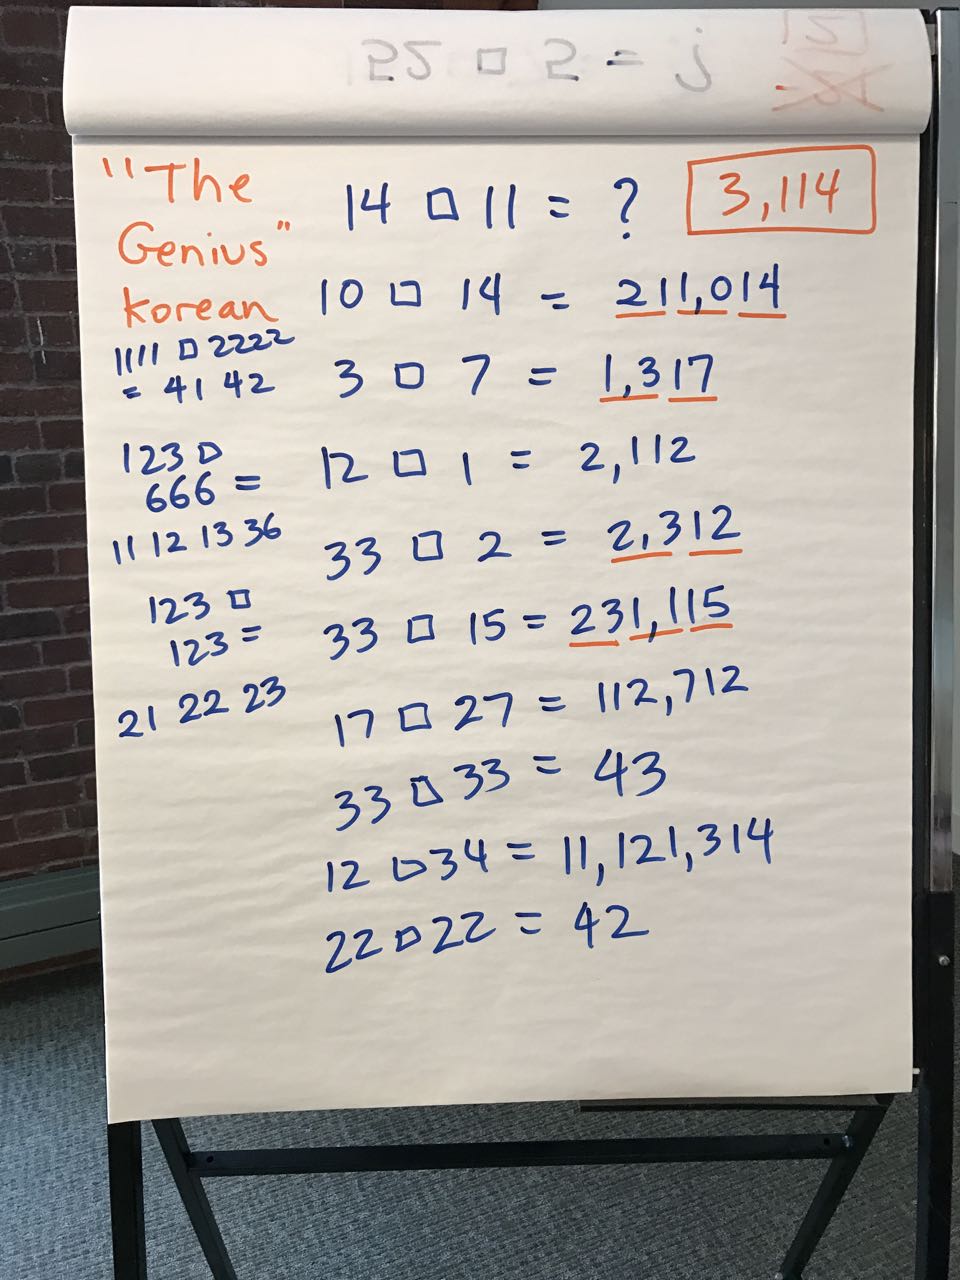 52 □ 5 = j
"The
Genius"
korean
14 □ 11 = ?
3,114
10 □ 14 = 211,014
1111 □ 2222
= 41 42
3 □ 7 = 1,317
123 □
666 =
11 12 13 36
12 □ 1 = 2,112
33 □ 2 = 2,312
123 □
123 =
21 22 23
33 □ 15 = 231,115
17 □ 27 = 112,712
33 □ 33 = 43
12 □ 34 = 11,121,314
22 □ 22 = 42